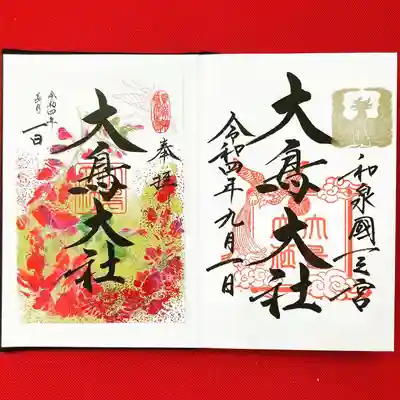 和泉國一之宮
大鳥大社
令和四年九月一日
奉拝
大鳥大社
令和四年
長月
一日